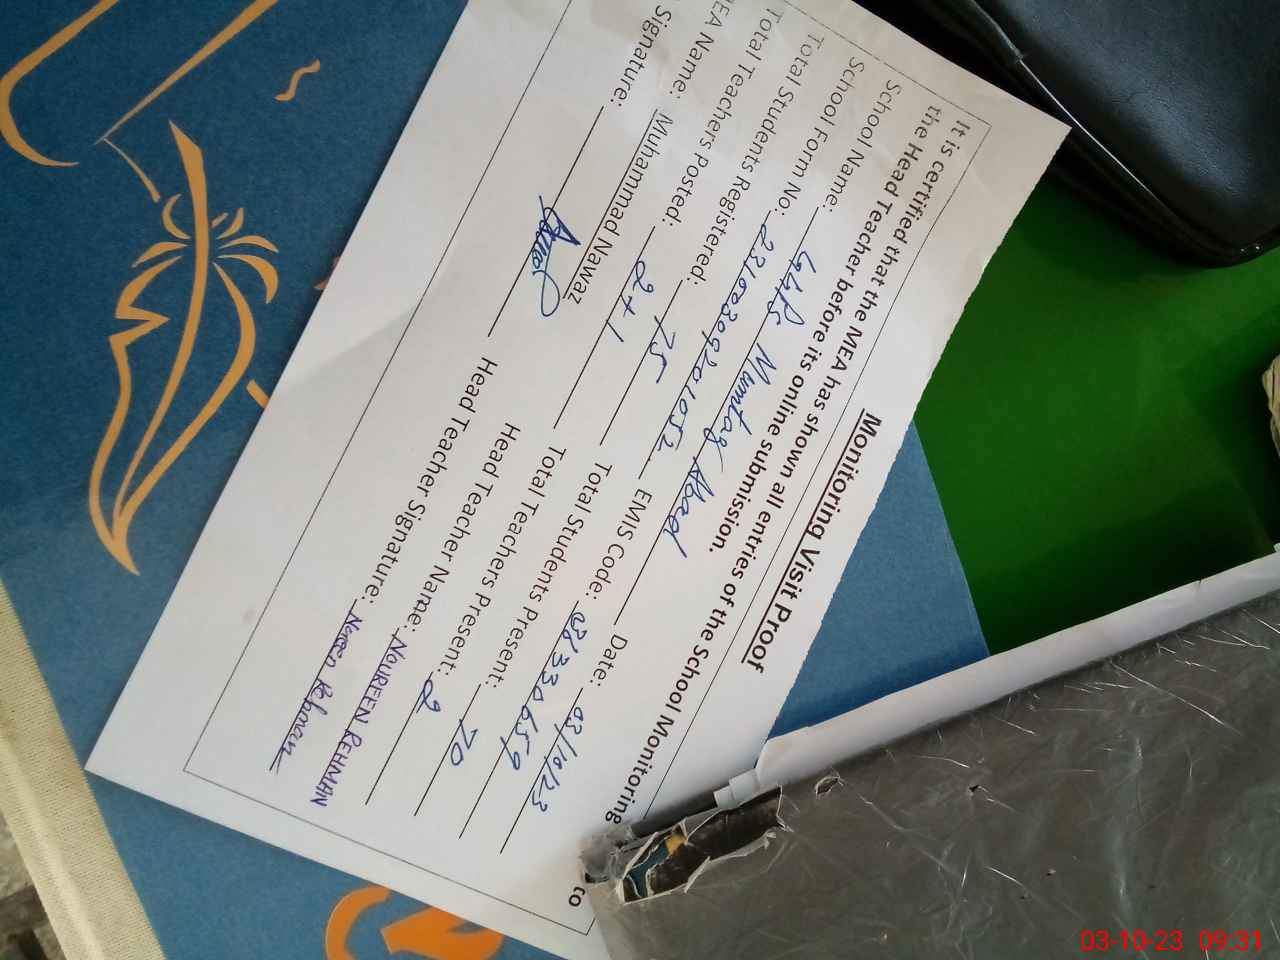 Monitoring Visit Proof
It is certified that the MEA has shown all entries of the School Monitoring to
the Head Teacher before its online submission.
School Name: GGPS Mumtaz Abad Date: 03/10/23
School Form No: 23100309201052 EMIS Code:
Total Students Registered: 75 Total Students Present: 70
Total Teachers Posted: 2+1 Total Teachers Present: 2
EA Name: Muhammad Nawaz Head Teacher Name: NOUREEN REHMAN
Signature: Head Teacher Signature: Noreen Rehman
03-10-23 09:31